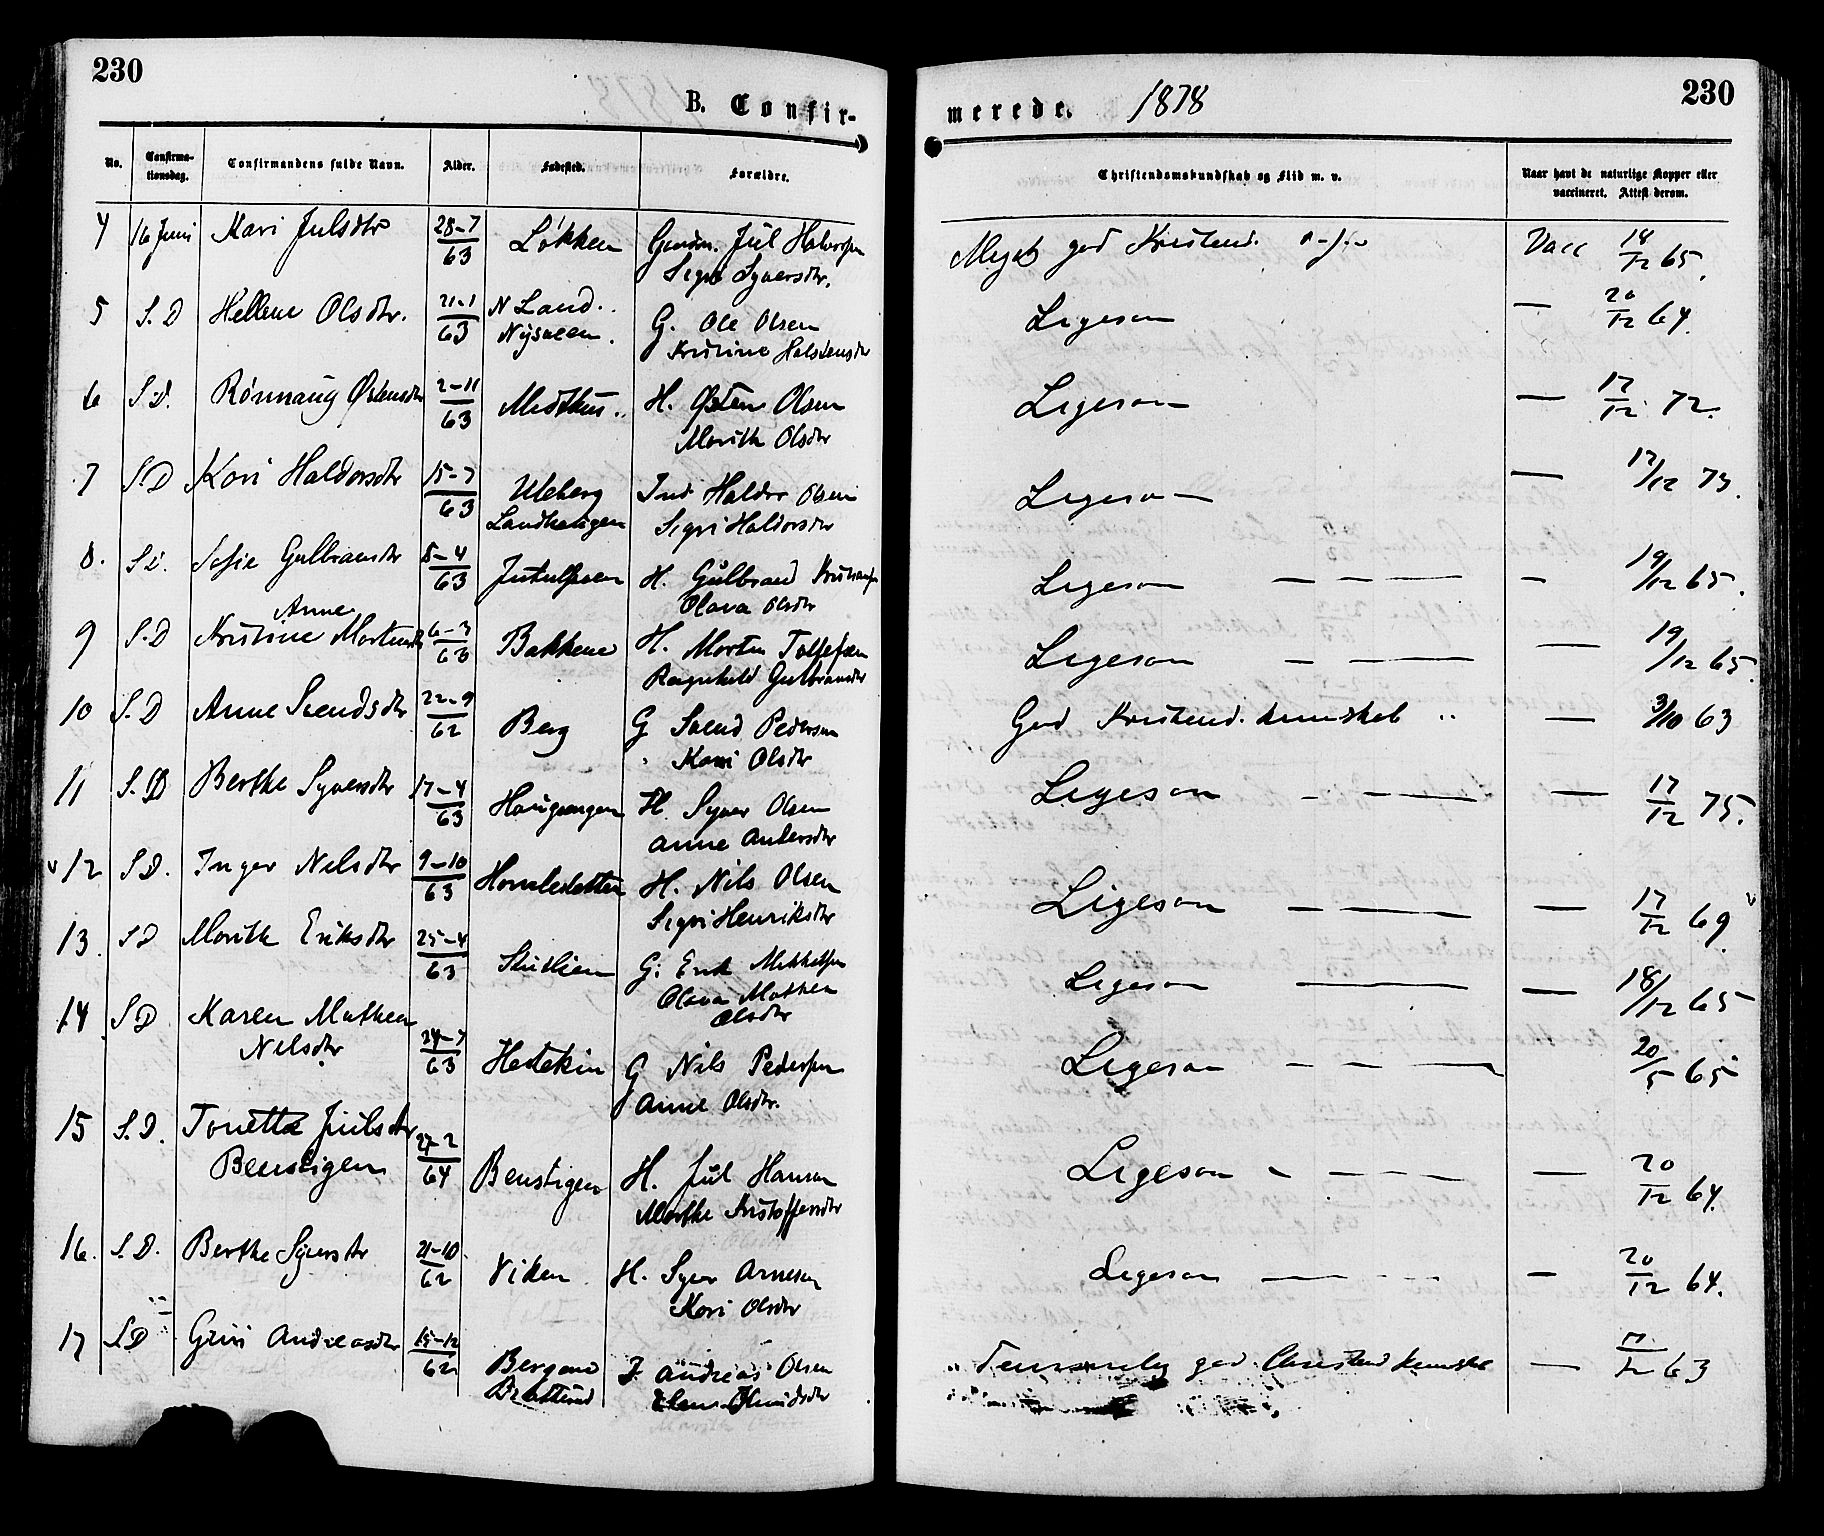 230
B. Confir-
No.
Confirma-
tionsdag.
Confirmandens fulde Navn.
Alder.
Fødested.
Forældre.
4 16 Juni Kari Julsdtr 28-7/63 Løkken Gaardm. Jul Halvorsen
Sigri Syversdtr.
5 S.D Hellene Olsdtr. 21-1/63 N Land. G. Ole Olsen
Kristine Halstensdtr
6 S.D. Rønnaug Østensdtr 2-11/63 Midthus. H. Østen Olsen
Marith Olsdtr
7 S.D Kari Haldorsdtr 15-7/63 Uleberg Ind Haldor Olsen
Landhaugen Sigri Haldorsdtr
8. S.D. Sofie Gulbransdtr 8-4/63 H. Gulbrand
Olava Olsdtr
Anne
9 S.D Kristine Mortensdtr 6-3/63 Bakkene H. Morten Tollefsen
Ragnhild Gulbransdtr
10 S.D Anne Svendsdtr 22-9/62 Berg G Svend Pedersen
Kari Olsdtr
11 S.D Berthe Syversdtr 17-4/63 H. Syver Olsen
Anne Andersdtr
12 S.D. Inger Nilsdtr 9-10/63 H. Nils Olsen
Sigri Henriksdtr
13. S.D Marith Eriksdtr 25-4/63 G. Erik Mikkelsen
Olava Mathea
Olsdtr
14 S.D Karen Mathea 24-7/63 G Nils Pedersen
Nilsdtr Anne Olsdtr.
15 S.D. Tonette Julsdtr 27-2/64 Benstigen H. Jul Hansen
Benstigen Marthe Kristoffersdtr
16. S.D. Berthe Syversdtr 21-10/62 Viken H. Syver Arnesen
Kari Olsdtr
17 S.D Guri Andreasdtr 15-12/62 I. Andreas Olsen
merede. 1878
230
Christendomskundskab og Flid m. v.
Naar havt de naturlige Kopper eller
vaccineret. Attest derom.
Meget god Kristend. Vacc 18/12 65.
Ligesom — 20/12 64.
Ligesom — 17/12 72.
Ligesom — 17/12 73.
Ligesom — — — — 19/12 65.
Ligesom — — — 19/12 65.
God Kristend. kunskab — 3/10 63
Ligesom — — — — 17/12 75.
Ligesom — — — — 17/12 69.
Ligesom — — 18/12 65
Ligesom — — — 20/5 65
Ligesom — — — — 20/12 64.
Ligesom — — — — 20/12 64.
Temmelig god Christend kunska — 17/12 63